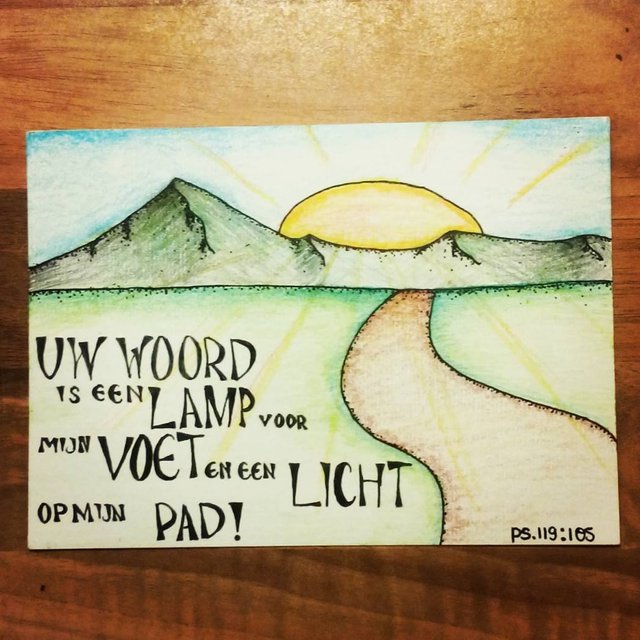 UW WOORD
IS EEN LAMP VOOR
MIJN VOET EN EEN LICHT
OP MIJN PAD!
PS.119:105